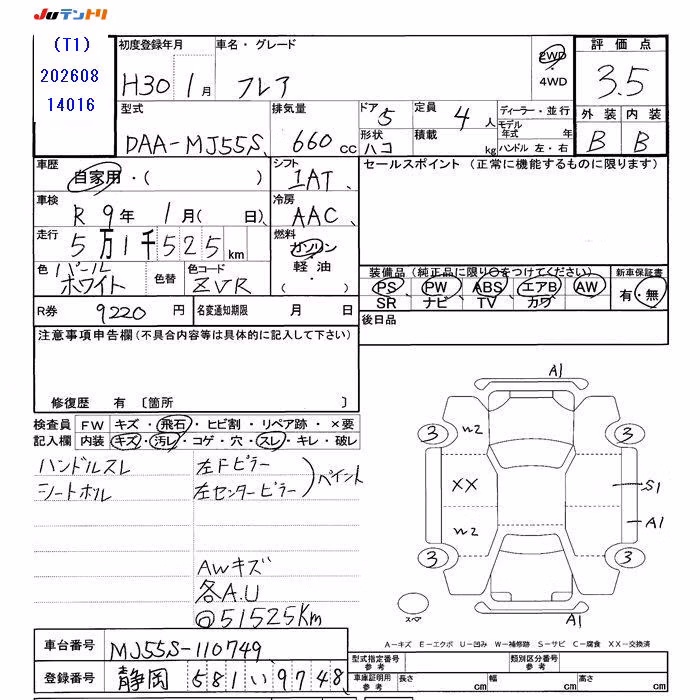 Juテントリ
(T1)
202608
14016
初度登録年月
H30 1月
車名・グレード
フレア
2WD
4WD
評価点
3.5
外装 内装
B B
型式
DAA-MJ55S
排気量
660 cc
ドア 5
形状 ハコ
定員 4人
積載 kg
ディーラー・並行
モデル年式 年
ハンドル 左・右
車歴
自家用・( )
シフト
IAT
セールスポイント (正常に機能するものに限ります)
車検
R9年 1月( 日)
冷房
AAC
走行
5万1千525km
燃料
ガソリン
軽油・
( )
色 パール
ホワイト
色替
色コード
ZVR
装備品 (純正品に限り○をつけてください)
PS PW ABS エアB AW
SR ナビ TV カワ
新車保証書
有・無
R券 9220円
名変通知期限 月 日
後日品
注意事項申告欄(不具合内容等は具体的に記入して下さい)
修復歴 有 〔箇所 〕
検査員
記入欄
FW キズ・飛石・ヒビ割・リペア跡・×要
内装 キズ・汚レ・コゲ・穴・スレ・キレ・破レ
ハンドルスレ
シートホル
左Fピラー
左センターピラー
ペイント
AWキズ
各A.U
@51525Km
A1
3 W2 3
XX S1
W2 A1
3 3
スペア
A1
A－キズ E－エクボ U－凹み W－補修跡 S－サビ C－腐食 XX－交換済
車台番号 MJ55S-110749
登録番号 静岡 581 い 9748
型式指定番号 参考
類別区分番号 参考
車庫証明用 参考
長さ cm 幅 cm 高さ cm